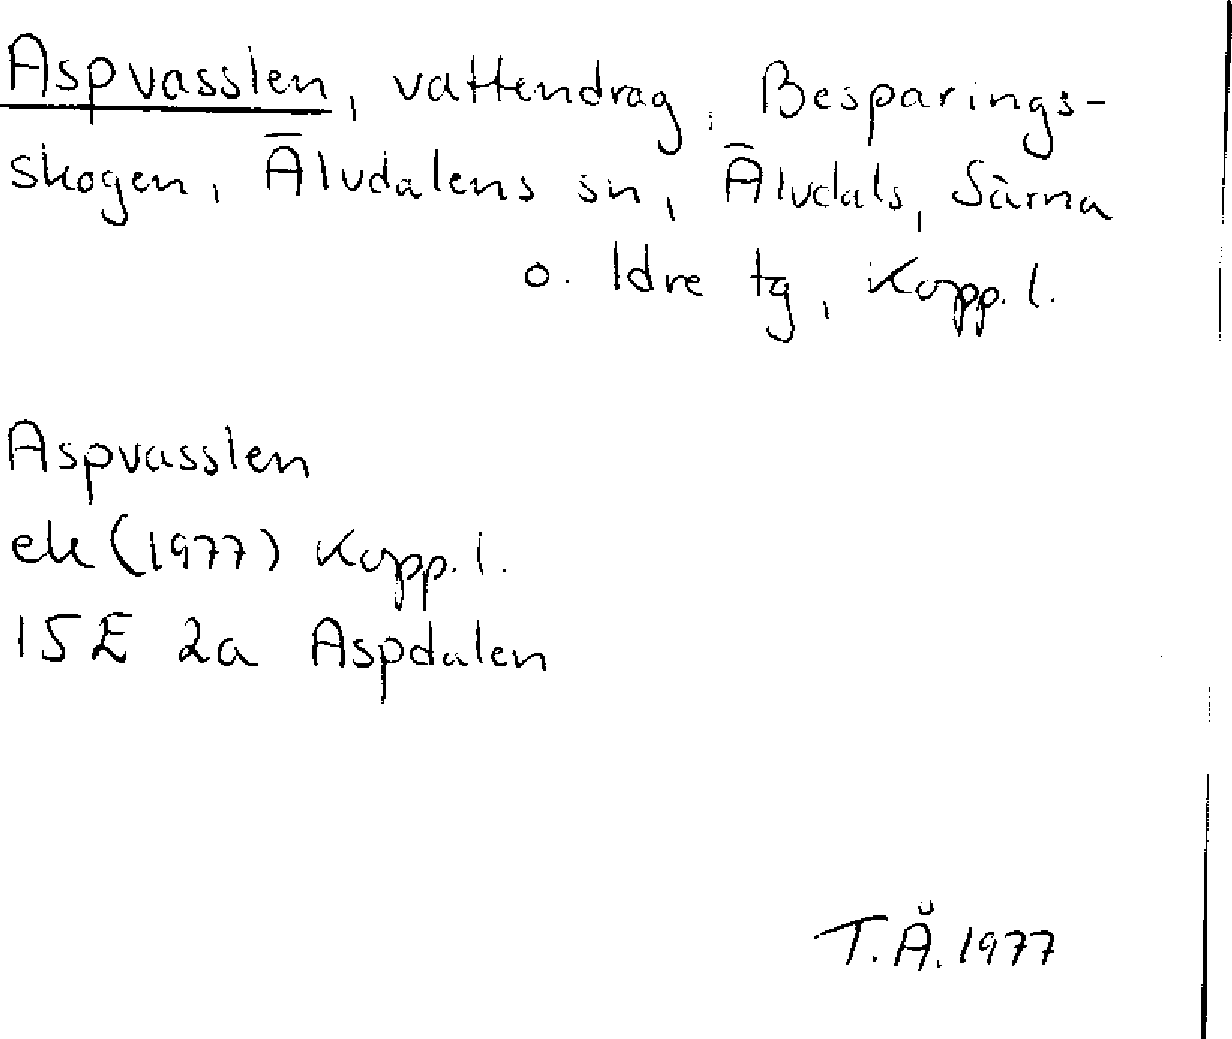 Aspvasslen, vattendrag, Besparings-
skogen, Älvdalens sn, Älvdals, Särna
o. Idre tg, Kopp. l.
Aspvasslen
ek (1977) Kopp. l.
15E 2a Aspdalen
T.Å. 1977